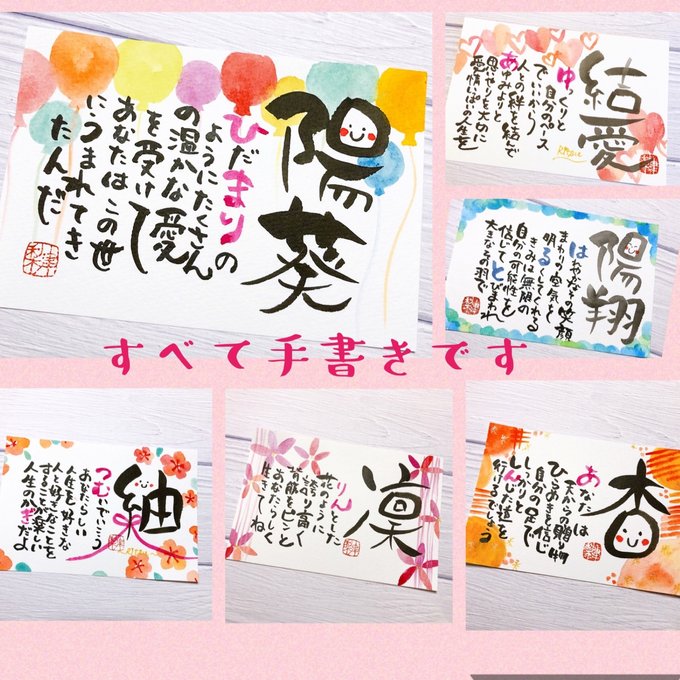 陽葵
ひだまりの
ようにたくさん
の温かな愛
を受け
あなたはこの世
にうまれてき
たんだ
結愛
ゆっくりと
自分のペース
でいいから
人との絆を結んで
あゆみよりと
思いやりを大切に
愛情いっぱいの人生を
陽翔
はなやかなその笑顔
まわりの空気を
明るくしてくれる
きみは無限の
自分の可能性を
信じてとびまわれ
大きなその羽で
すべて手書きです
紬
つむいでいこう
あなたらしい
人生を好きな
人と好きなことを
することが楽しい
人生のかぎだよ
凛
りんとした
花のように
誇り高く
背筋をピンと
あなたらしく
生きてね
杏
あなたは
天からの贈り物
ひらめきを信じ
自分の足で
しっかりと
しんじた道を
行けるでしょう